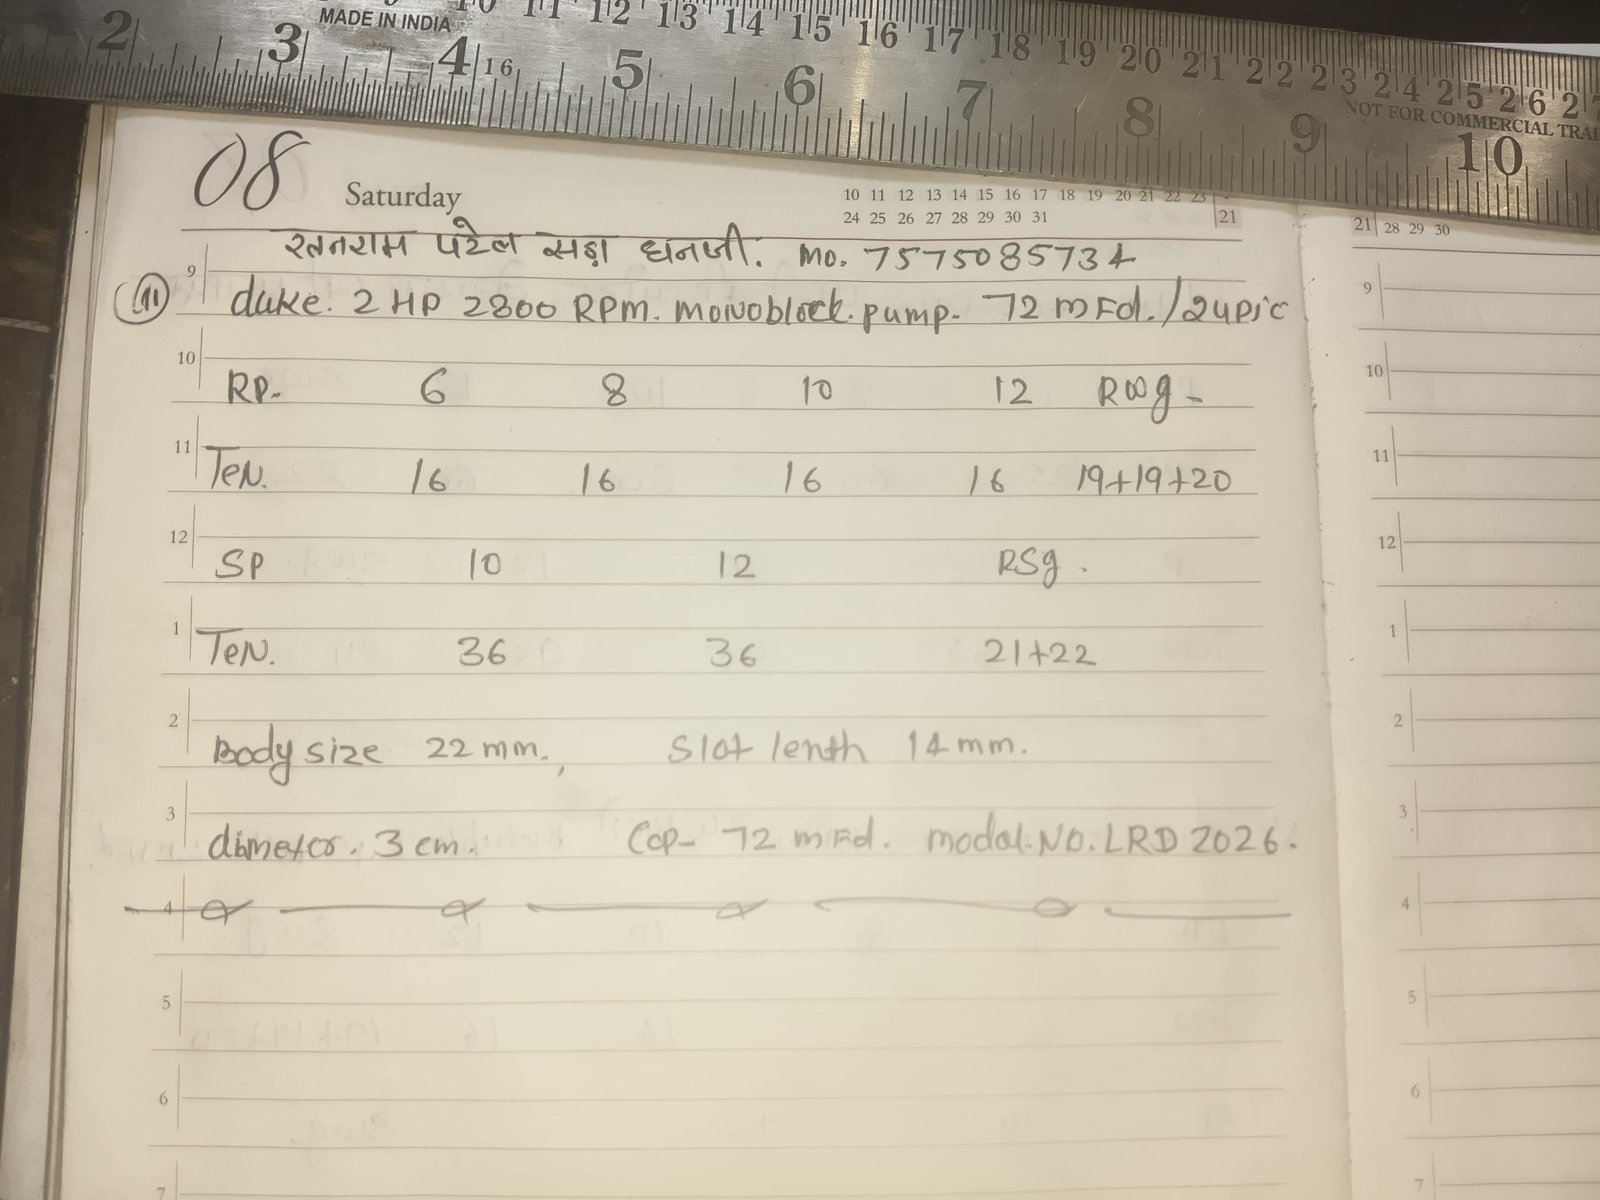 2 3 4 16 5 6 7 8 9 10
MADE IN INDIA 10 11 12 13 14 15 16 17 18 19 20 21 22 23 24 25 26
NOT FOR COMMERCIAL
08 Saturday
10 11 12 13 14 15 16 17 18 19 20 21 22 23
24 25 26 27 28 29 30 31 21
रतनराम पटेल सड़ा धनजी. MO. 7575085734
9
(11) duke. 2 HP 2800 RPM. monoblock. pump- 72 mFd. /24pic
10
RP- 6 8 10 12 Rwg-
11
TeN. 16 16 16 16 19+19+20
12
SP 10 12 RSg.
1
TeN. 36 36 21+22
2
Body size 22 mm., Slot lenth 14 mm.
3
dimeter. 3 cm. Cap- 72 mFd. modal.NO. LRD 2026.
4
5
6
7
21 28 29 30
9
10
11
12
1
2
3
4
5
6
7